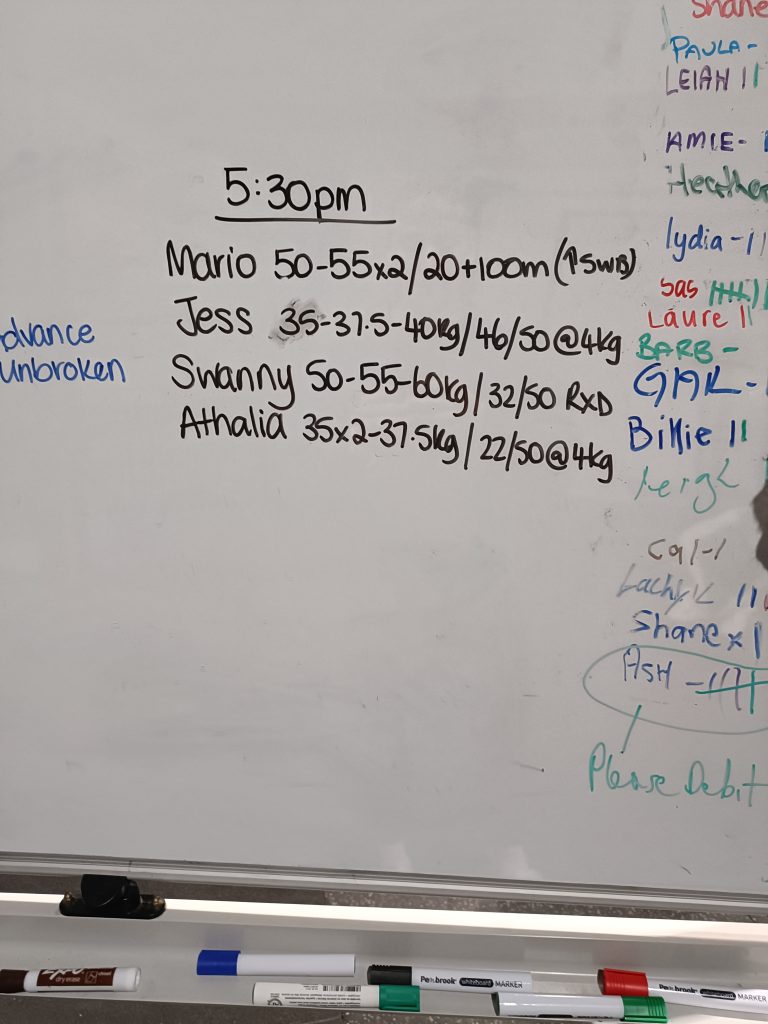 5:30pm
Mario 50-55x2/20+100m (↑SWB)
Jess 35-37.5-40kg/46/50@4kg
Swanny 50-55-60kg/32/50 RxD
Athalia 35x2-37.5kg/22/50@4kg
dvance
Unbroken
Shane
PAULA-
LEIAH ||
AMIE-
Heather
lydia-||
Sas
Laure |
BARB -
Billie ||
Cal-|
Shane x |
ASH -
Please Debit
dry erase
Penbrook whiteboard MARKER
Penbrook whiteboard MARKER